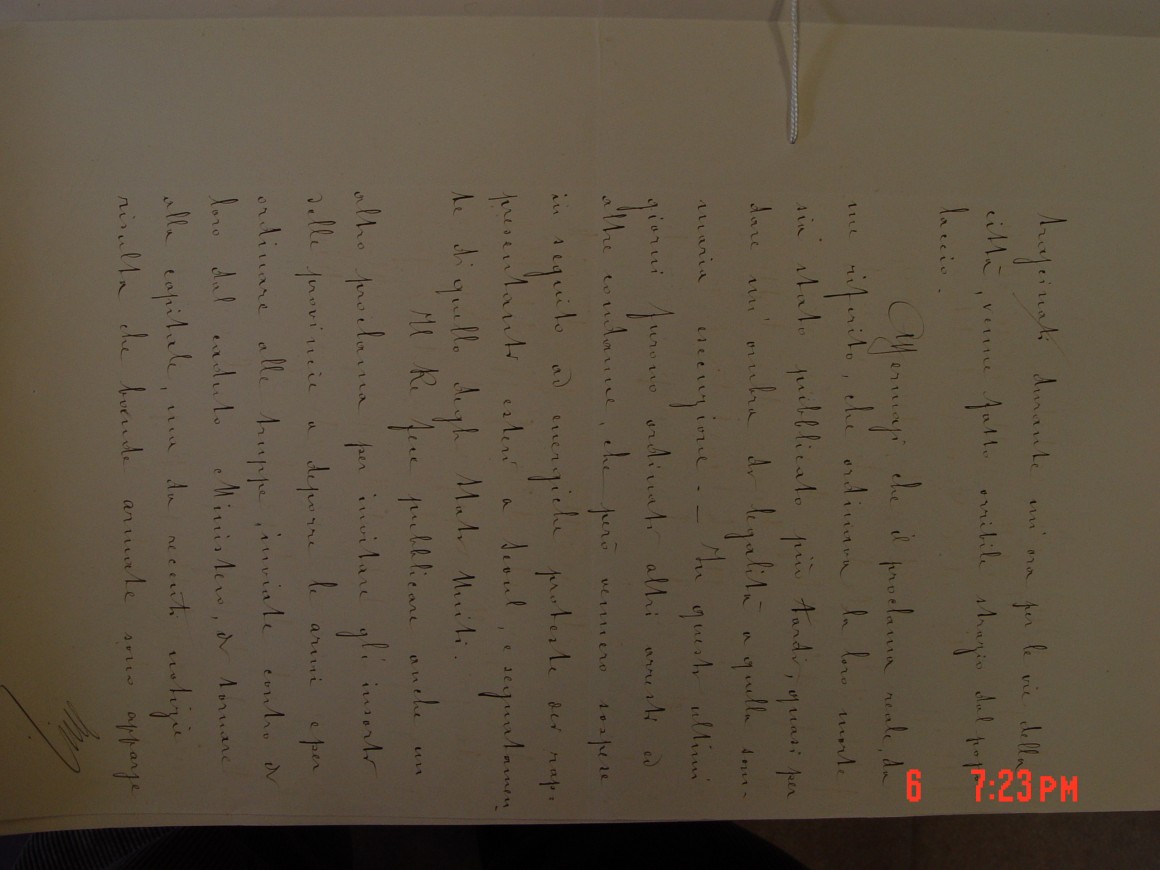 trascinati durante un'ora per le vie della
città, venne fatto orribile strazio dal popo-
laccio.
Affermasi che il proclama reale, da
me riferito, che ordinava la loro morte
sia stato pubblicato più tardi, quasi per
dare un'ombra di legalità a quella som-
maria esecuzione. — In questi ultimi
giorni furono ordinati altri arresti ed
altre condanne, che però vennero sospese
in seguito ad energiche proteste dei rap-
presentanti esteri a Seoul, e segnatamen-
te di quello degli Stati Uniti.
Il Re fece pubblicare anche un
altro proclama per invitare gli insorti
delle provincie a deporre le armi e per
ordinare alle truppe, inviate contro di
loro dal caduto Ministero, di tornare
alla capitale, ma da recenti notizie
risulta che bande armate sono apparse
6 7:23 PM